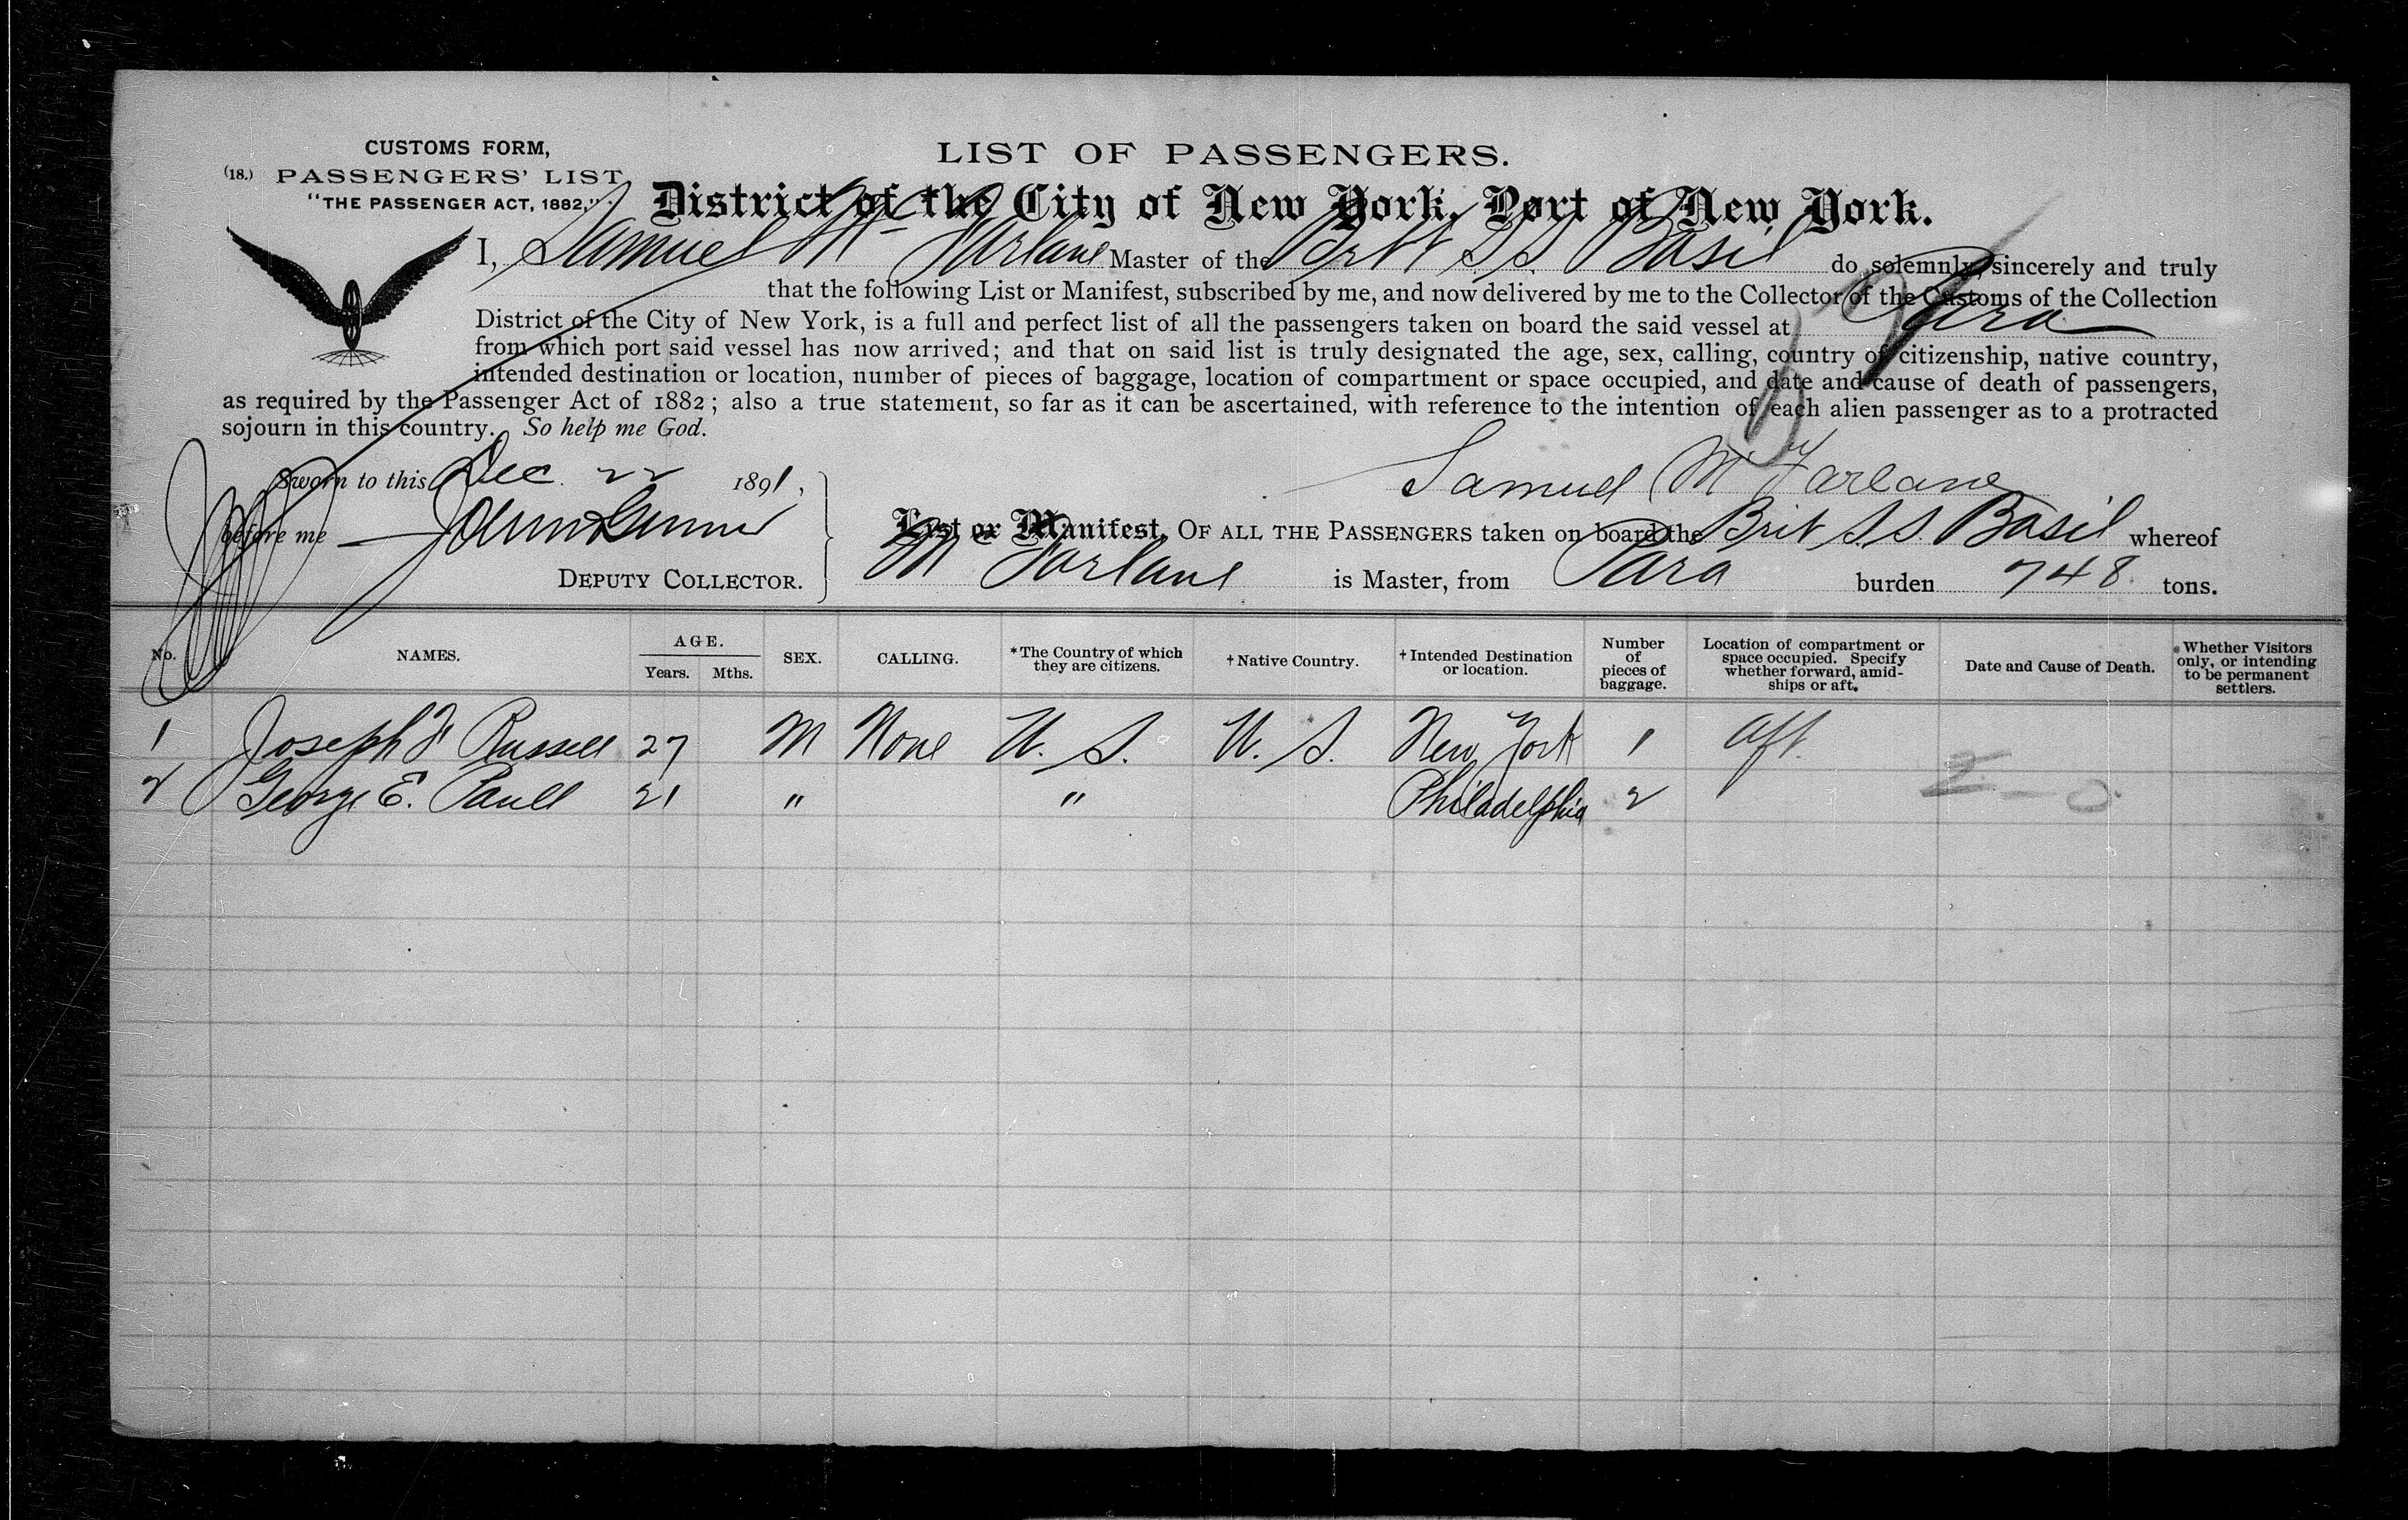 CUSTOMS FORM,
(18.) PASSENGERS' LIST
"THE PASSENGER ACT, 1882,"
LIST OF PASSENGERS.
District of the City of New York, Port of New York.
I, Samuel Mc Farlane Master of the Brit S.S. Basil do solemnly, sincerely and truly
that the following List or Manifest, subscribed by me, and now delivered by me to the Collector of the Customs of the Collection
District of the City of New York, is a full and perfect list of all the passengers taken on board the said vessel at Para
from which port said vessel has now arrived; and that on said list is truly designated the age, sex, calling, country of citizenship, native country,
intended destination or location, number of pieces of baggage, location of compartment or space occupied, and date and cause of death of passengers,
as required by the Passenger Act of 1882; also a true statement, so far as it can be ascertained, with reference to the intention of each alien passenger as to a protracted
sojourn in this country. So help me God.
Sworn to this Dec. 22 1891,
before me
DEPUTY COLLECTOR.
Samuel McFarlane
List or Manifest, OF ALL THE PASSENGERS taken on board the Brit S.S. Basil whereof
Mc Farlane is Master, from Para burden 748 tons.
No. NAMES. AGE. Years. Mths. SEX. CALLING. *The Country of which they are citizens. †Native Country. †Intended Destination or location. Number of pieces of baggage. Location of compartment or space occupied. Specify whether forward, amidships or aft. Date and Cause of Death. Whether Visitors only, or intending to be permanent settlers.
1 Joseph F Russell 27 M None U. S. U. S. New York 1 Aft.
2 George E. Paull 21 " " Philadelphia 2
2 - 0.